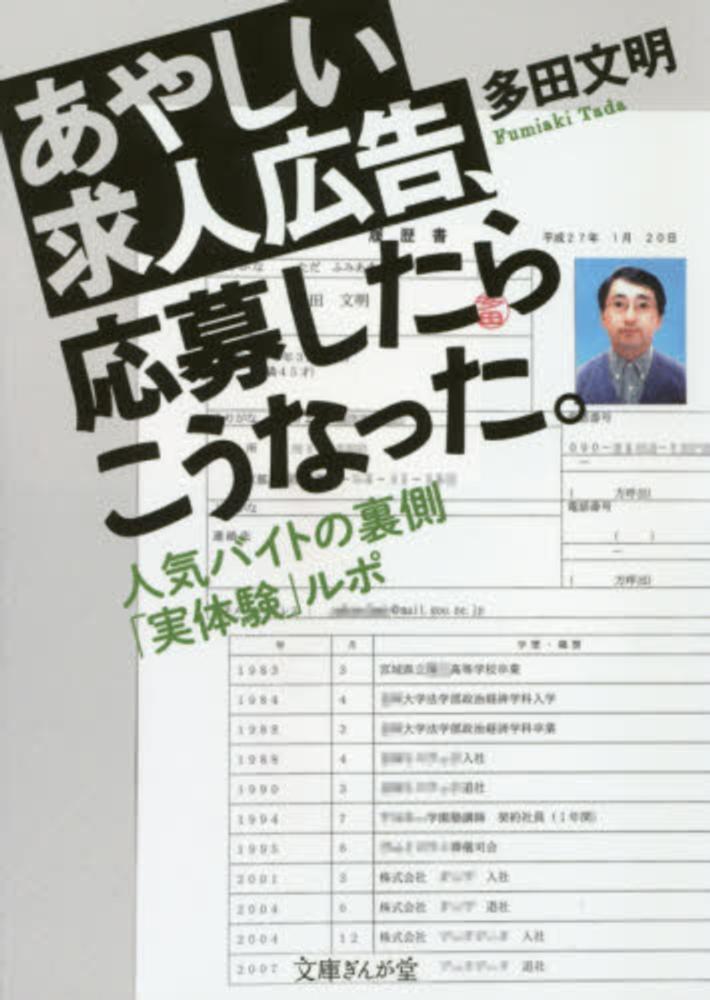 あやしい
求人広告、
応募したら
こうなった。
多田文明
Fumiaki Tada
人気バイトの裏側
「実体験」ルポ
履歴書
平成27年 1月 20日
ふみあき
田 文明
多田
090-
方呼出
電話番号
( )
方呼出
連絡先
@mail.goo.ne.jp
年 月 学歴・職歴
1983 3 宮城県立 高等学校卒業
1984 4 大学法学部政治経済学科入学
1988 3 大学法学部政治経済学科卒業
1988 4 入社
1990 3 退社
1994 7 学園塾講師 契約社員(1年間)
1995 6 司会
2001 3 株式会社 入社
2004 6 株式会社 退社
2004 12 株式会社 入社
2007 退社
文庫ぎんが堂